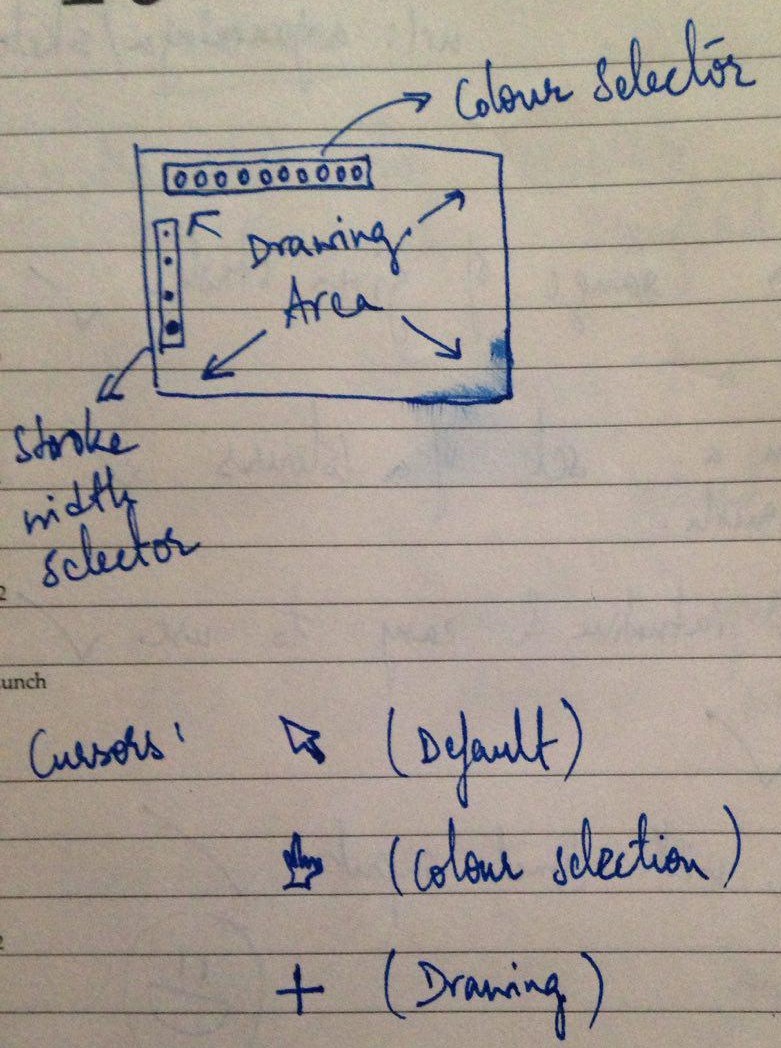 Colour Selector
Drawing
Area
Stroke
width
selector
unch
Cursors:
(Default)
(Colour selection)
(Drawing)